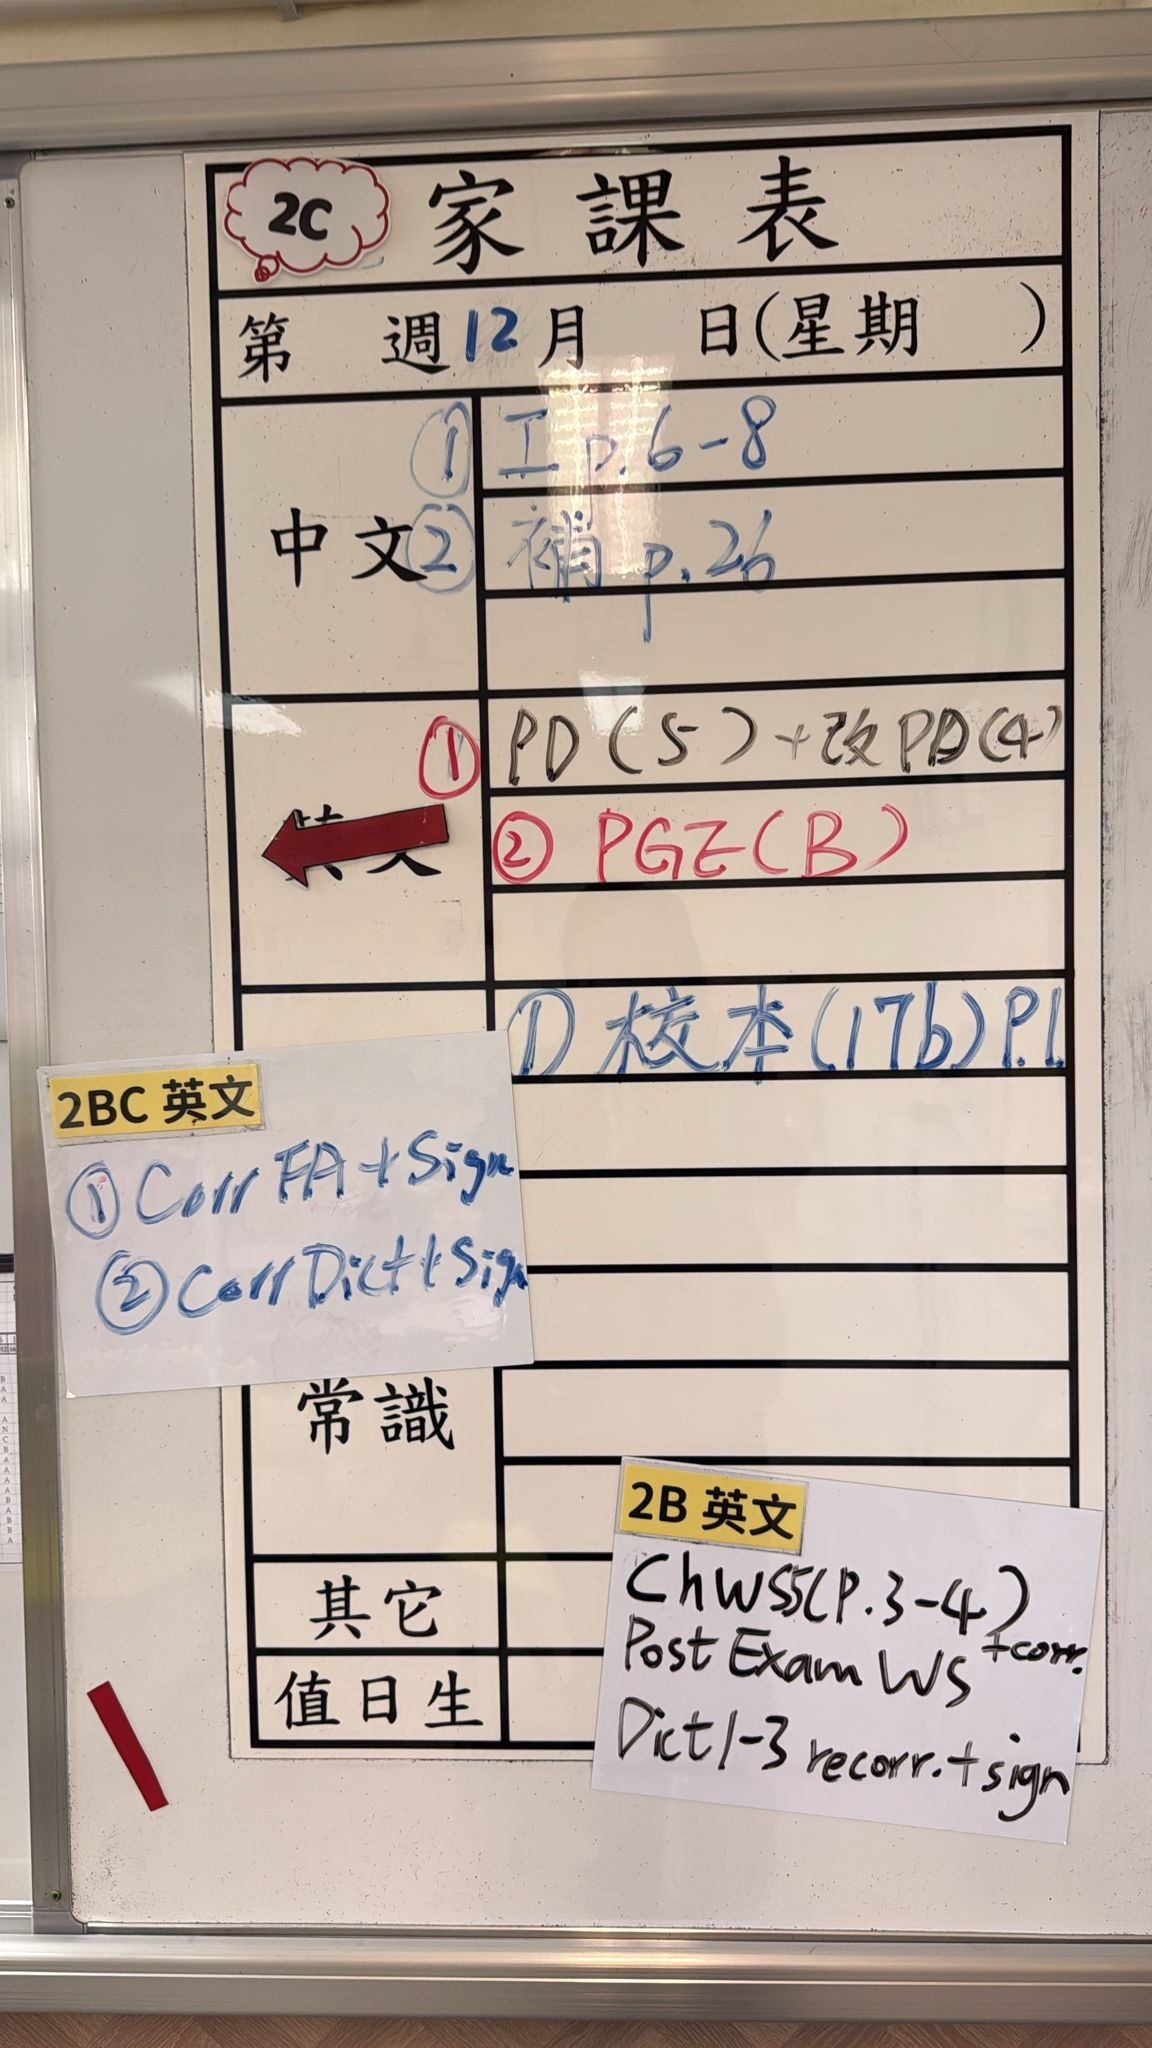 2C 家課表
第 週 12 月 日(星期 )
中文
① 工 p.6-8
② 補 p.26
① PD(5)+改PD(4)
② PGE(B)
① 校本(17b)P.1
2BC 英文
① Corr FA + Sign
② Corr Dict + Sign
常識
2B 英文
ChWS5(P.3-4)
+corr.
Post Exam WS
Dict 1-3 recorr. + sign
其它
值日生